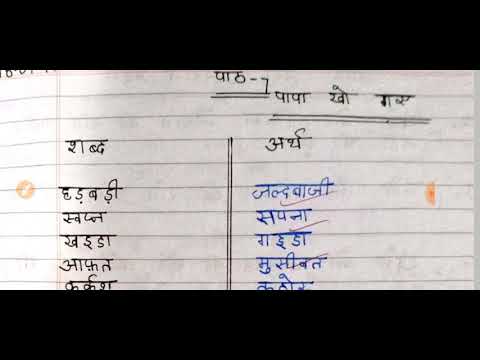 पाठ-7
पापा खो गए
शब्द अर्थ
हड़बड़ी जल्दबाजी
स्वप्न सपना
खड्डा गड्डा
आफ़त मुसीबत
कर्कश कठोर